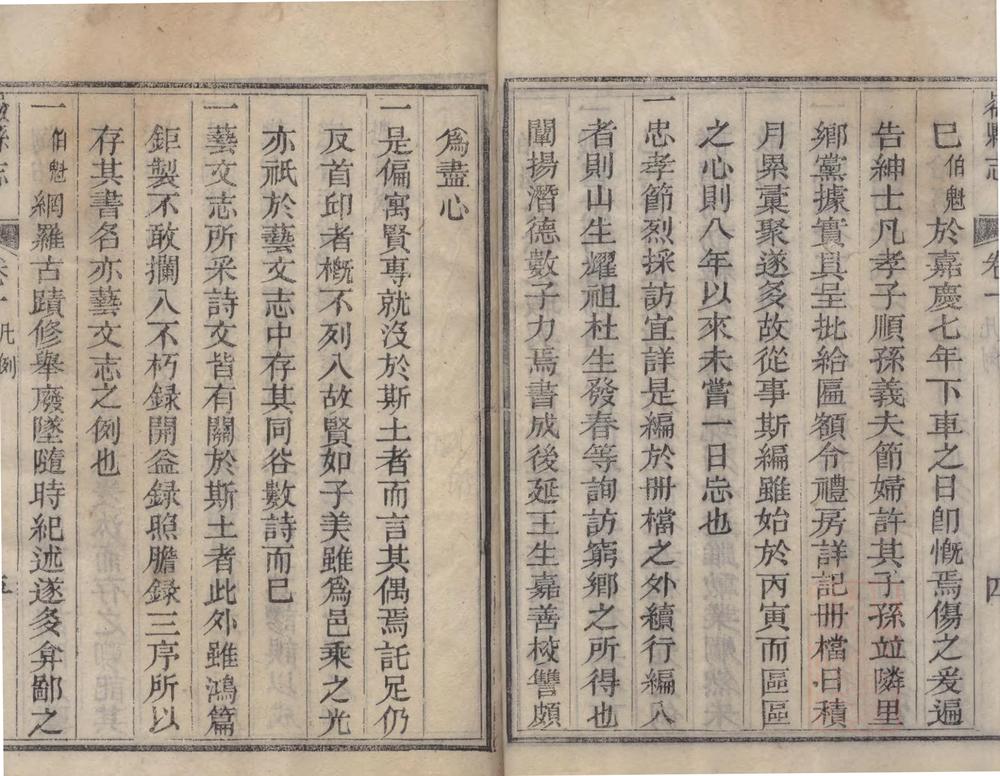 巳伯魁於嘉慶七年下車之日卽慨焉傷之爰遍
告紳士凡孝子順孫義夫節婦許其子孫竝隣里
鄉黨據實具呈批給匾額令禮房詳記册檔日積
月累彚聚遂多故從事斯編雖始於丙寅而區區
之心則八年以來未嘗一日忘也
一忠孝節烈採訪宜詳是編於册檔之外續行編入
者則山生耀祖杜生發春等詢訪窮鄉之所得也
闡揚潛德數子力焉書成後延王生嘉善校讐頗
爲盡心
一是偏寓賢專就沒於斯土者而言其偶焉託足仍
反首邱者槪不列入故賢如子美雖爲邑乘之光
亦祇於藝文志中存其同谷數詩而巳
一藝文志所采詩文皆有關於斯土者此外雖鴻篇
鉅製不敢攔入不朽録開益録照膽録三序所以
存其書名亦藝文志之例也
一伯魁網羅古蹟修舉廢墜隨時紀述遂多弇鄙之
卷一凡例
五